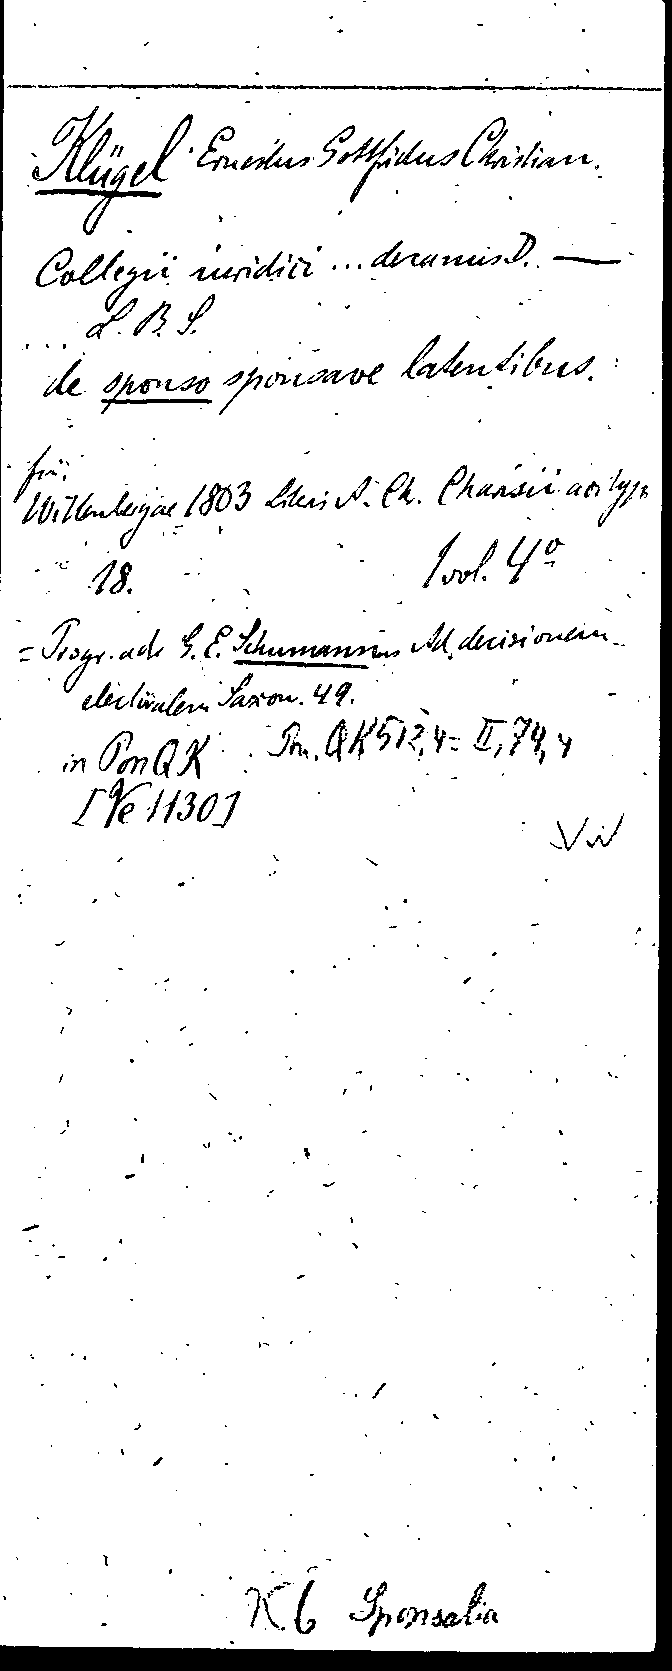 Klügel Ernestus Gottfridus Christian.
Collegii iuridici ... decanus D. —
... L. B. S.
de sponso sponsave latentibus.
für
Wittenbergae 1803 literis A. Ch. Charisii acad. typ.
18. 1 vol. 4°
= Progr. ad G. E. Schumannus Ad decisionem
electoralem Saxon. 49.
in Pon QK Pon. QK 512, 4 = II, 74, 4
[Ve 1130]
K6 Sponsalia